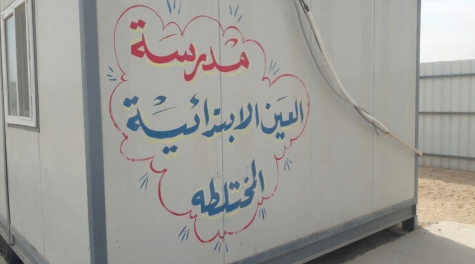 مدرسة
العين الابتدائية
المختلطه